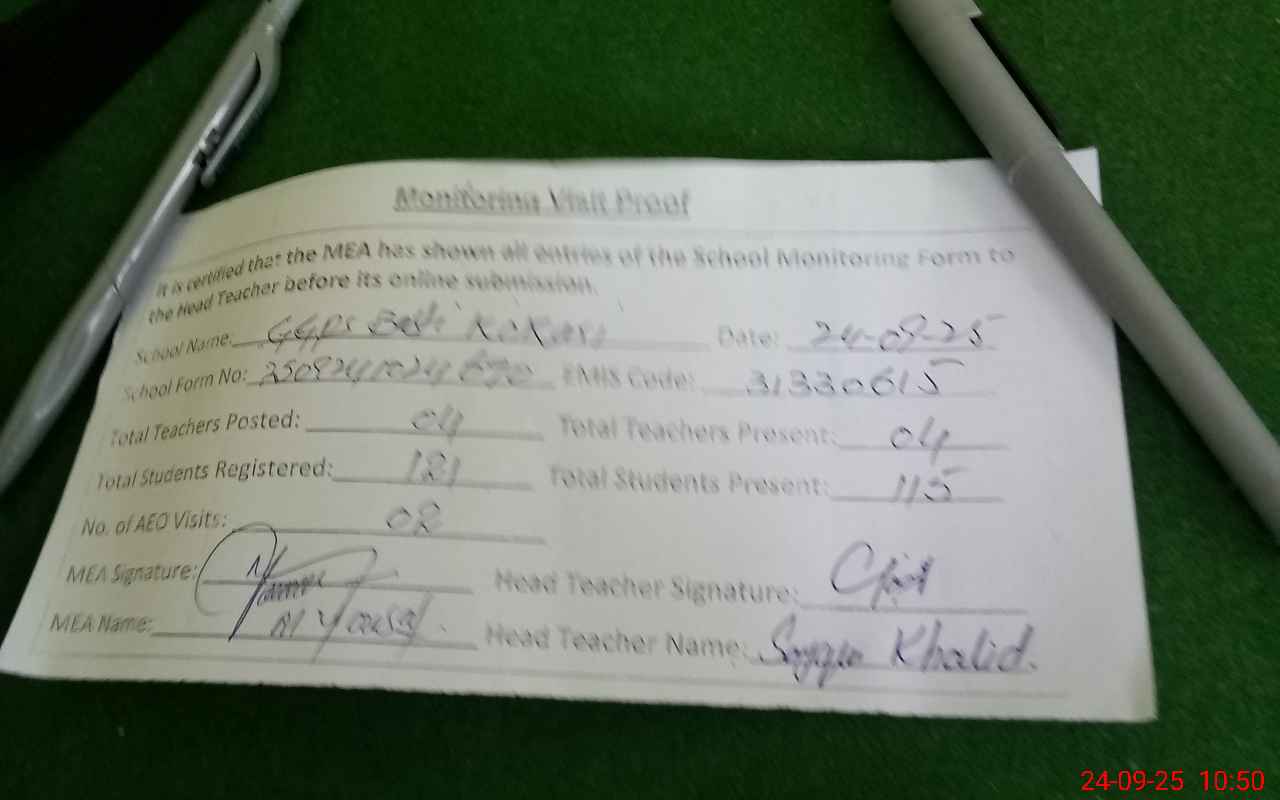 Monitoring Visit Proof
It is certified that the MEA has shown all entries of the School Monitoring Form to
the Head Teacher before its online submission.
School Name: GGPS Date: 24-09-25
School Form No: EMIS Code: 31330615
Total Teachers Posted: 04 Total Teachers Present: 04
Total Students Registered: 121 Total Students Present: 115
No. of AEO Visits: 02
MEA Signature: Head Teacher Signature:
MEA Name: M Yousaf Head Teacher Name: Khalid.
24-09-25 10:50